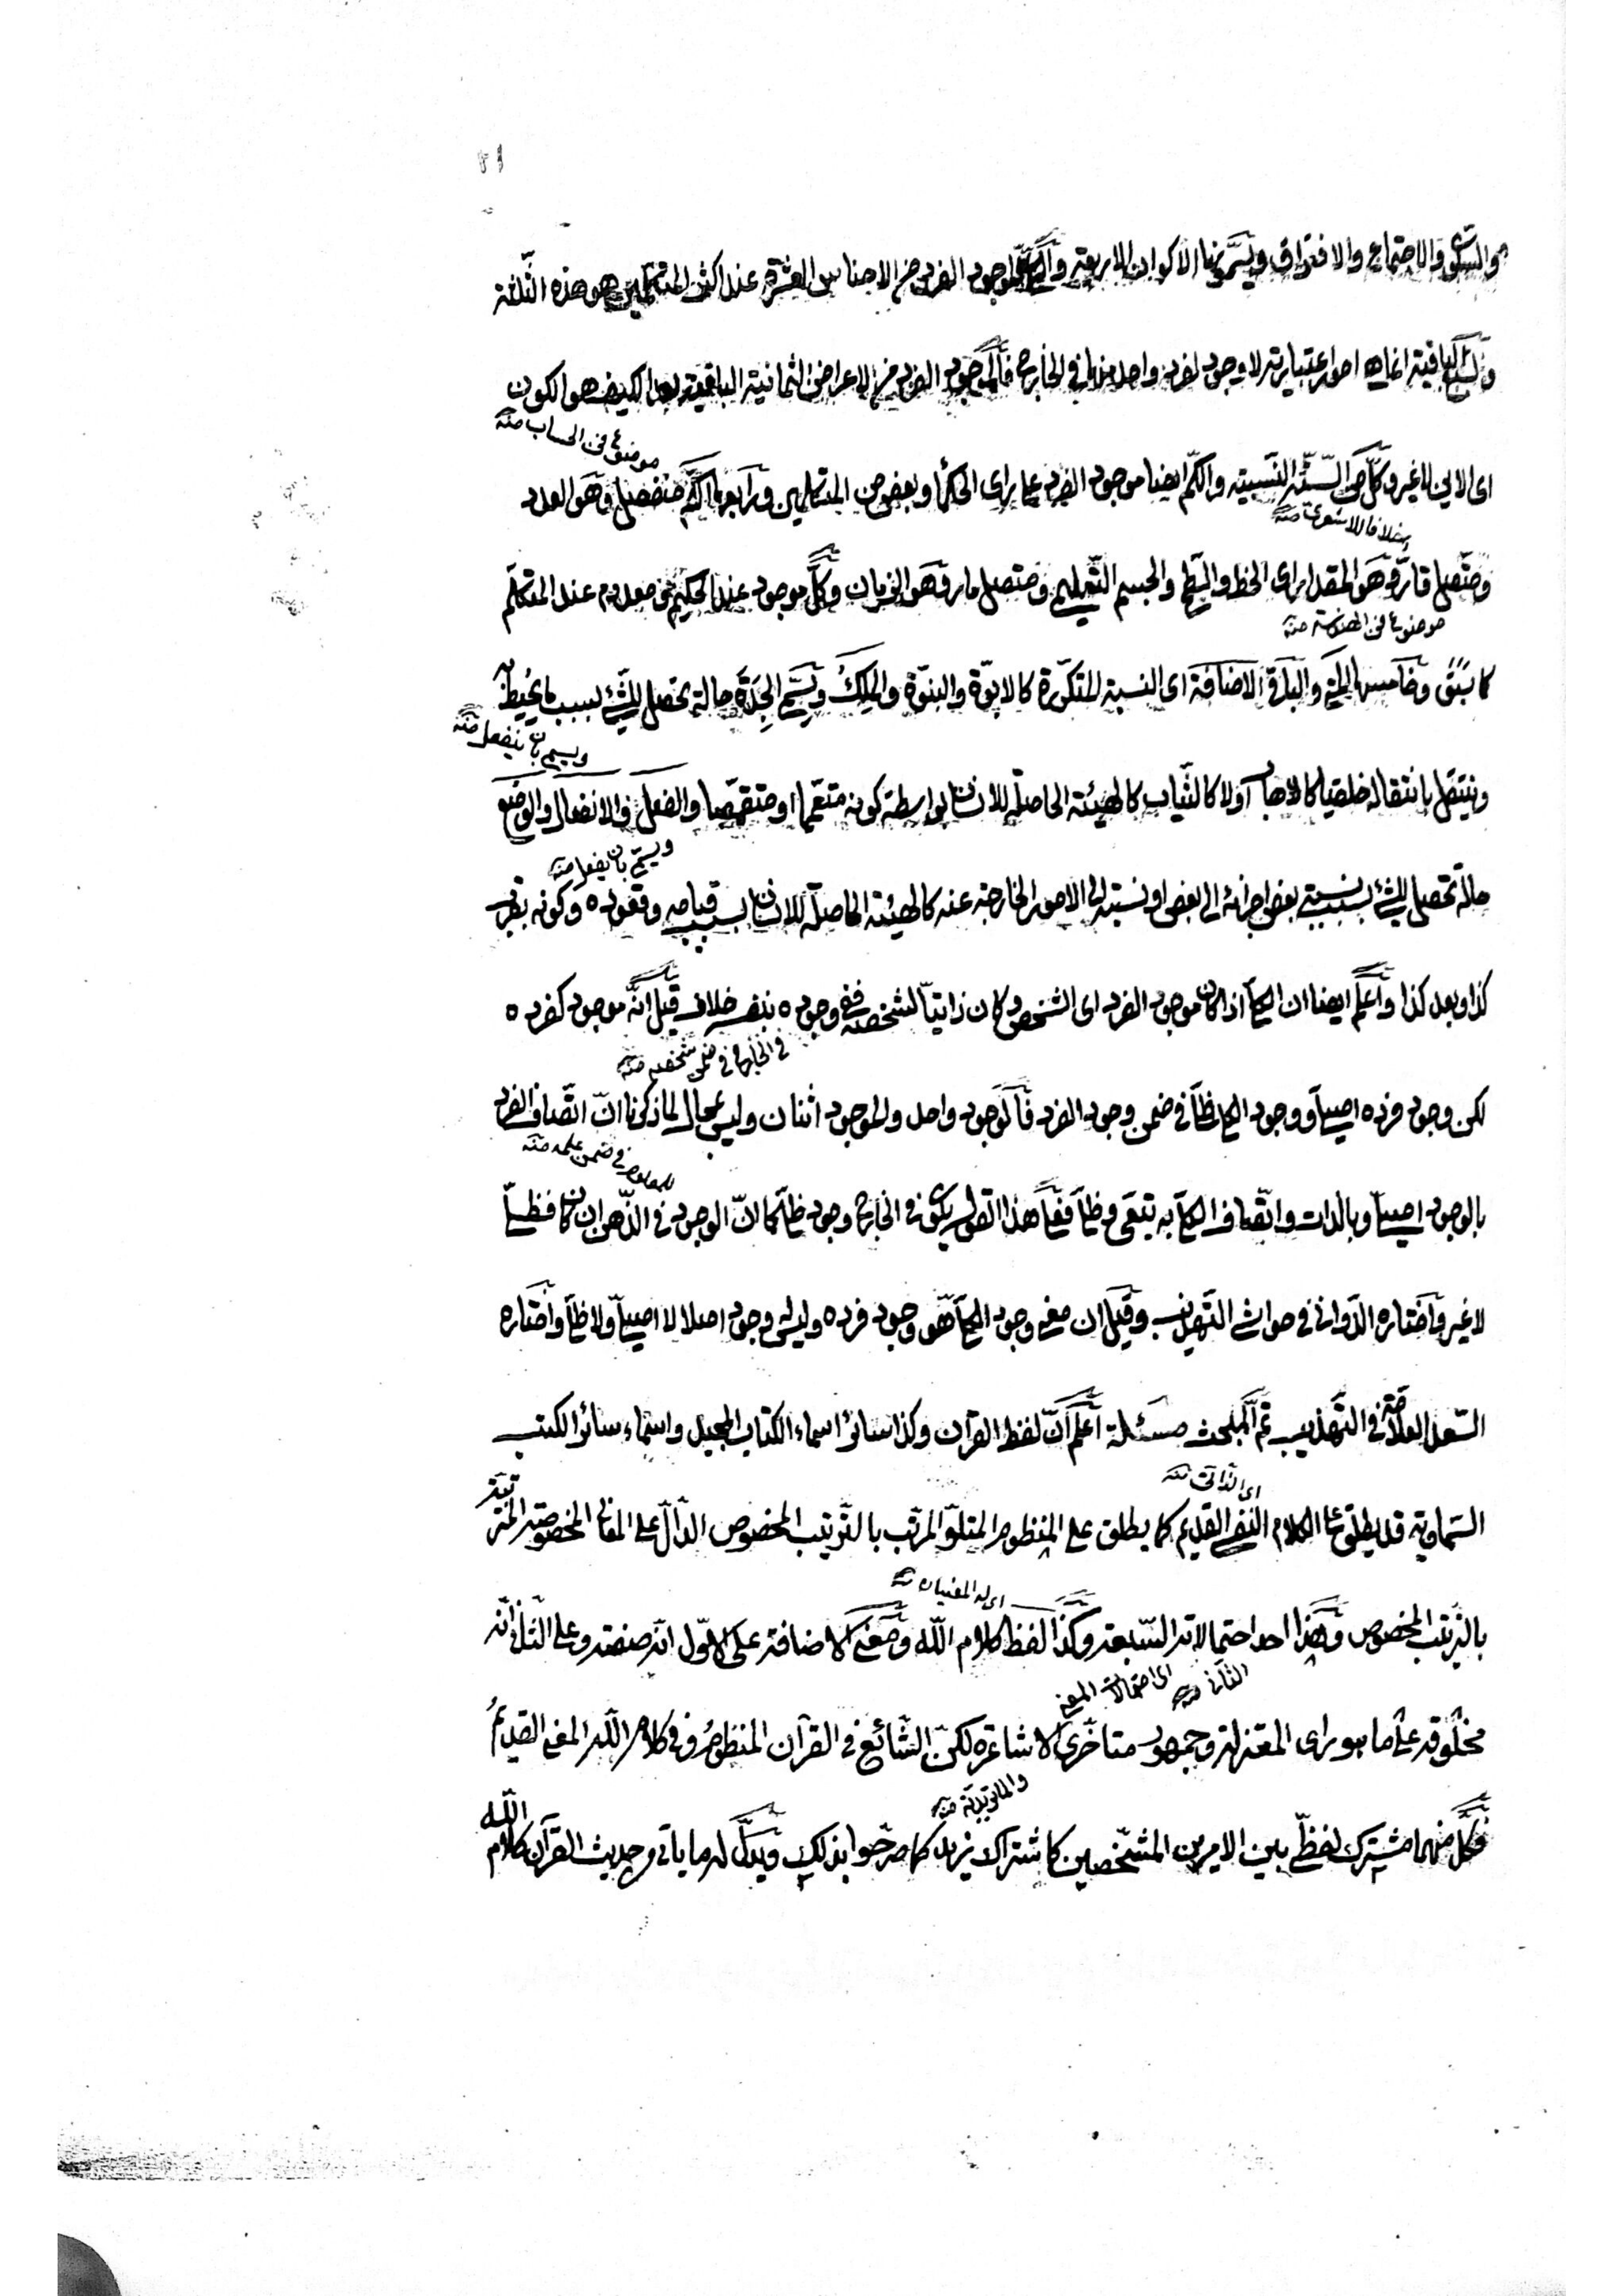 والسكون والاجتماع والافتراق ويسمونها الاكوان الاربعة والكلى الموجود الفرد من الاجناس العشرة عند اكثر المتكلمين هو هذه الثلثة
والسبع الباقية انما هى امور اعتبارية لا وجود لفرد واحد منها فى الخارج فالموجود الفرد من الاعراض الثمانية الباقية بعد الكيف هو الكون
موضوع فن الحساب منه
اى الاين لا غير وكل من الستة النسبية والكم ايضا موجود الفرد على راى الحكماء وبعض من المتكلمين ورابعها كم منفصل وهو العدد
خلافا للاشعرى منه
ومتصل قار وهو المقدار اى الخط والسطح والجسم التعليمى ومتصل مار وهو الزمان وكل موجود عند الحكيم معدوم عند المتكلم
موضوع فن الهندسة منه
كما سبق وخامس المائة والبلدة الاضافة اى النسبة المتكررة كالابوة والبنوة والملك ويسمى الجدة حالة تحصل للشئ بسبب ما يحيط به
ويسمى بان ينفعل منه
وينتقل بانتقاله خلقيا كالاهاب اولا كالثياب كالهيئة الحاصلة للانسان بواسطة كونه متعمما او متقمصا والفعل والانفعال والوضع
ويسمى بان يفعل منه
حالة تحصل للشئ بسبب نسبة بعض اجزائه الى بعض او نسبته الى الامور الخارجة عنه كالهيئة الحاصلة للانسان بسبب قيامه وقعوده وكونه بقرب
كذا وبعد كذا واعلم ايضا ان الكلى اذا كان موجود الفرد اى الشخص وكان ذاتيا لشخصه ففى وجوده بنفسه خلاف قيل انه موجود كفرده
فى الخارج فى ضمن شخصه منه
لكن وجود فرده اصيل ووجود الكلى ظلى فى ضمن وجود الفرد فالوجود واحد والموجود اثنان وليس بمحال لما ذكرنا ان اتصاف الفرد
للمعلوم فى ضمن علمه منه
بالوجود اصيل وبالذات واتصاف الكلى به تبعى وظلى فعلى هذا القول يكون فى الخارج وجود ظلى كما ان الوجود فى الذهن ان كان فظلى
لا غير واختاره الدوانى فى حواشى التهذيب وقيل ان معنى وجود الكلى هو وجود فرده وليس له وجود اصلا لا اصيل ولا ظلى واختاره
السعد العلامة فى التهذيب تم المبحث مسئلة اعلم ان لفظ القرآن وكذا سائر اسماء الكتاب المجيد واسماء سائر الكتب
اى الذاتى منه
السماوية قد يطلق على الكلام النفسى القديم كما يطلق على المنظوم المتلو المرتب بالترتيب المخصوص الدال على المعانى المخصوصة المترتبة
اى له المعنيان منه
بالترتيب المخصوص وهذا احد احتمالاته السبعة وكذا لفظ كلام الله ومعنى الاضافة على الاول انه صفته وعلى الثانى انه
الثانى منه اى احتمالات المعنى
مخلوقه على ما هو راى المعتزلة وجمهور متاخرى الاشاعرة لكن الشائع فى القرآن المنظوم وفى كلام الله المعنى القديم
والماتريدية منه
فكل منهما مشترك لفظى بين الامرين المشخصين كاشتراك زيد كما صرحوا بذلك ويدل له ما ياتى من حديث القرآن كلام الله